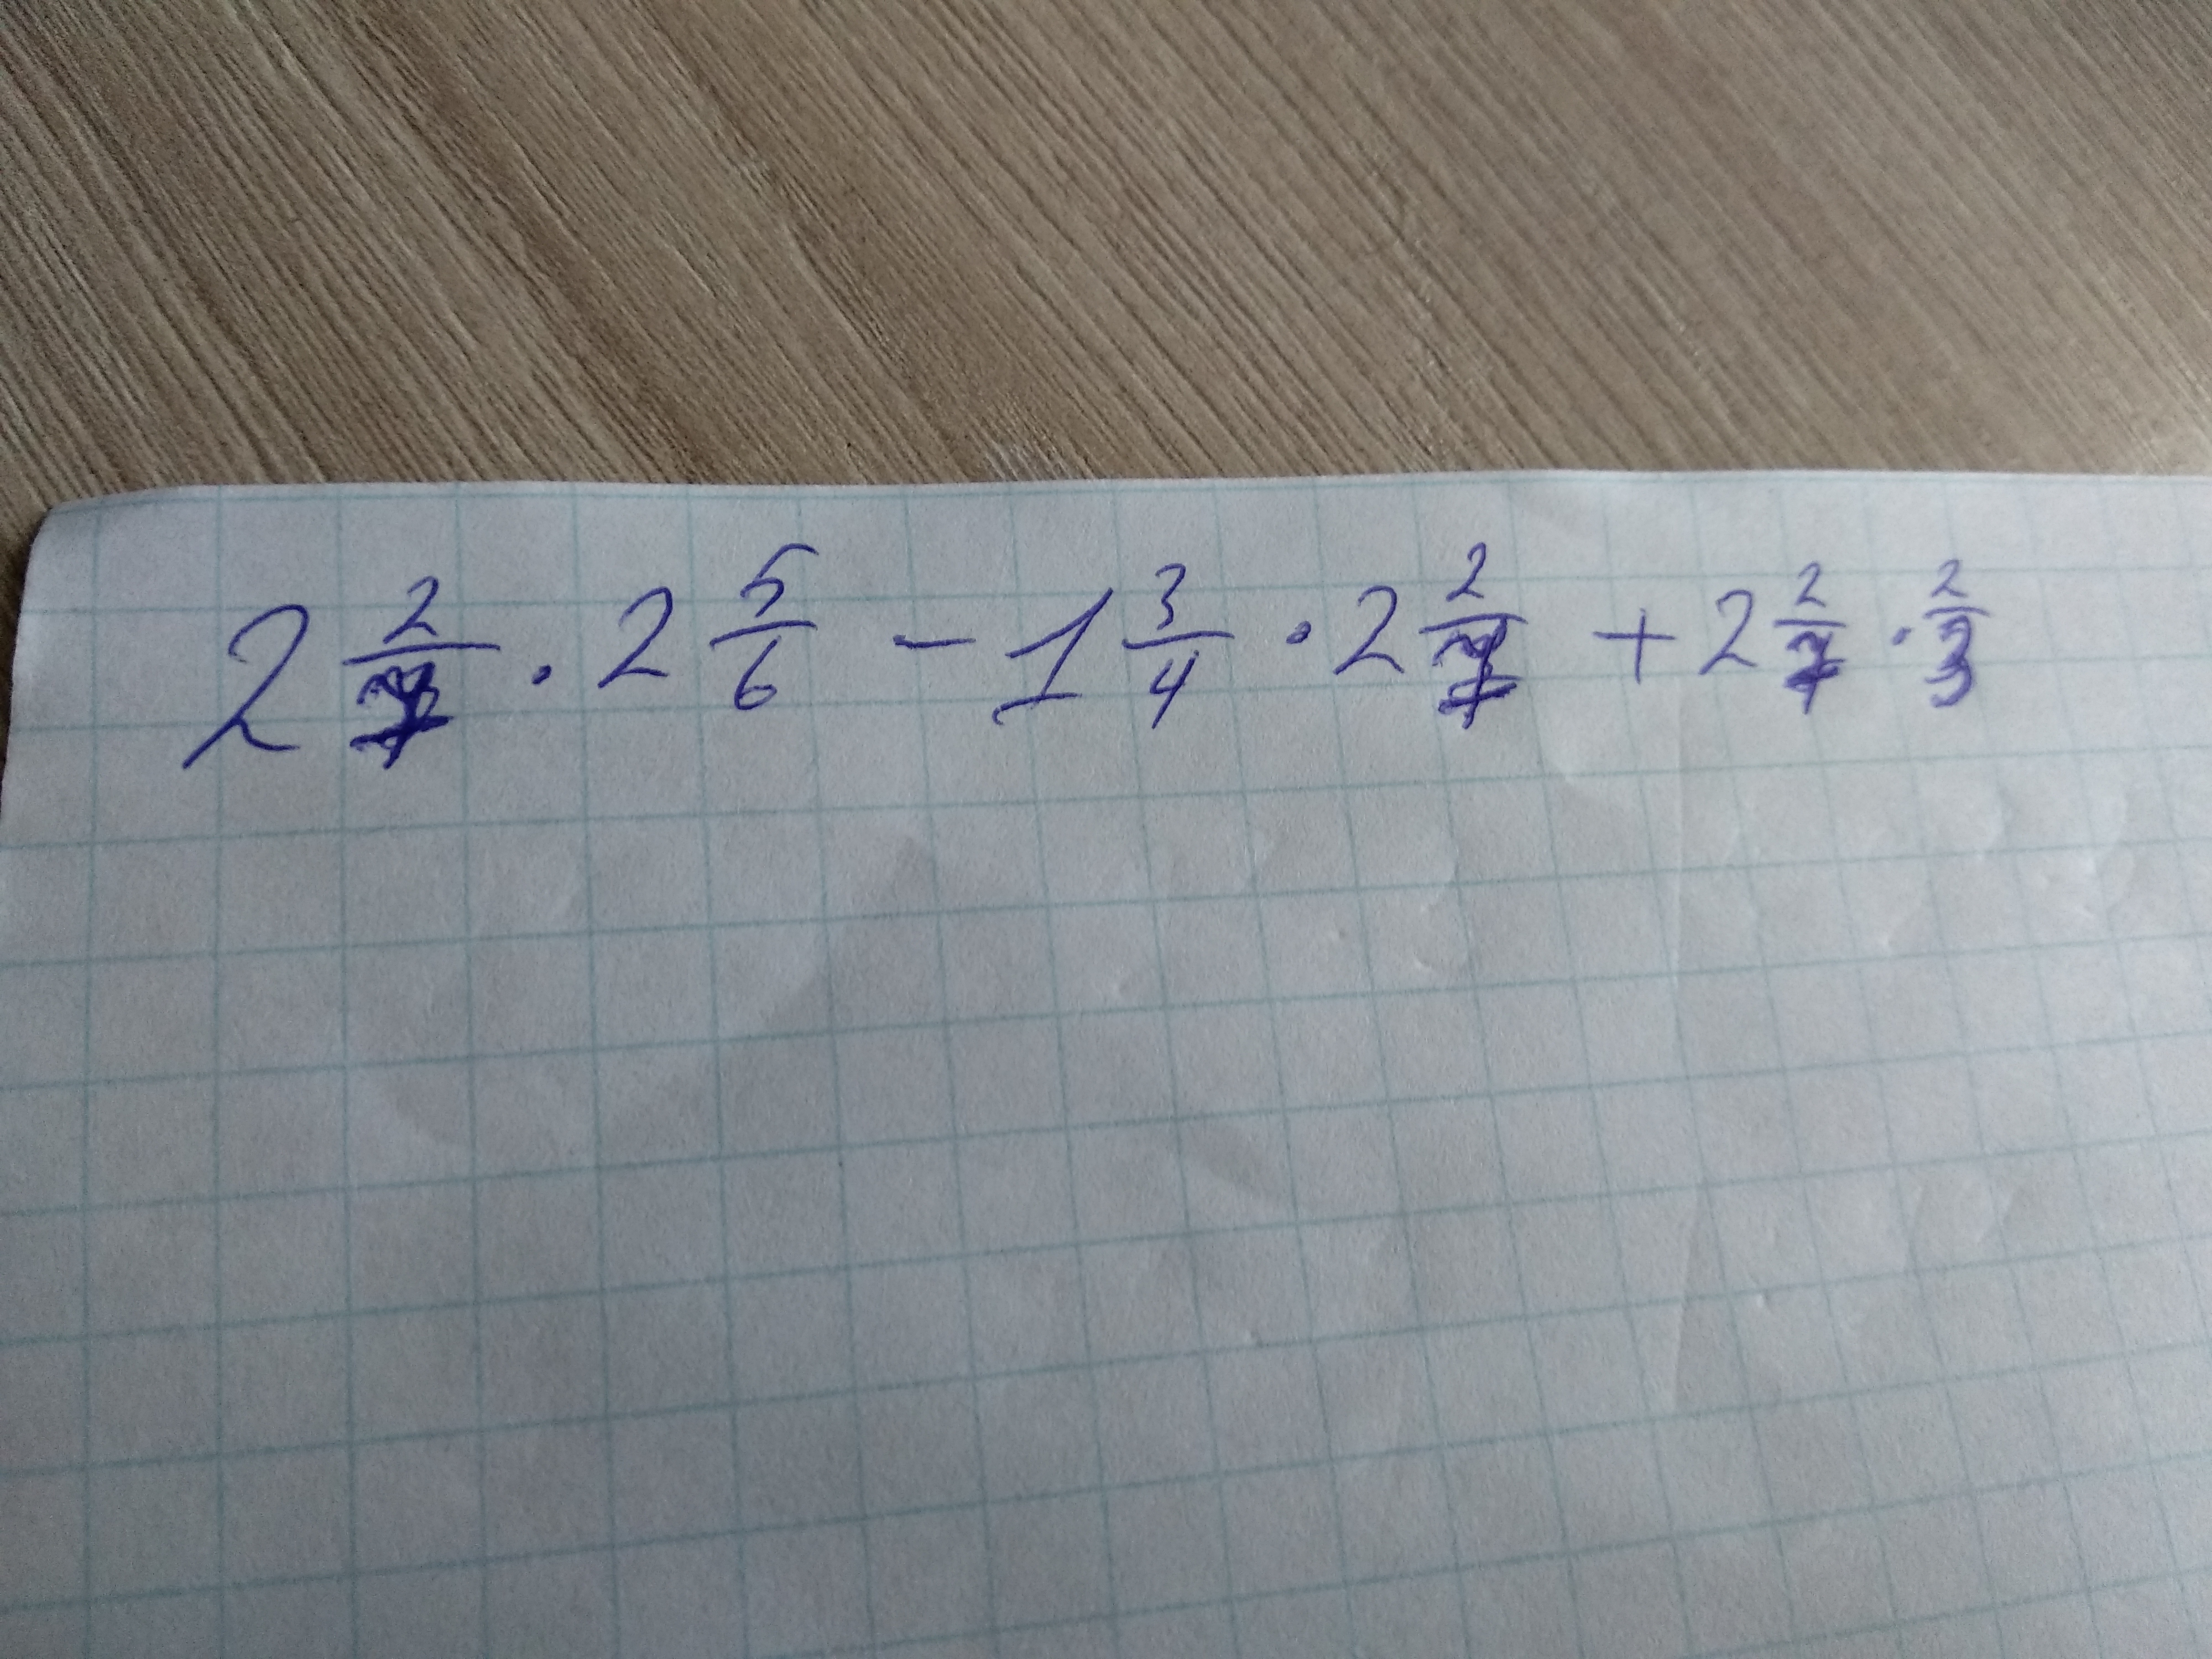 2 2/7 · 2 5/6 - 1 3/4 · 2 2/7 + 2 2/7 · 2/3